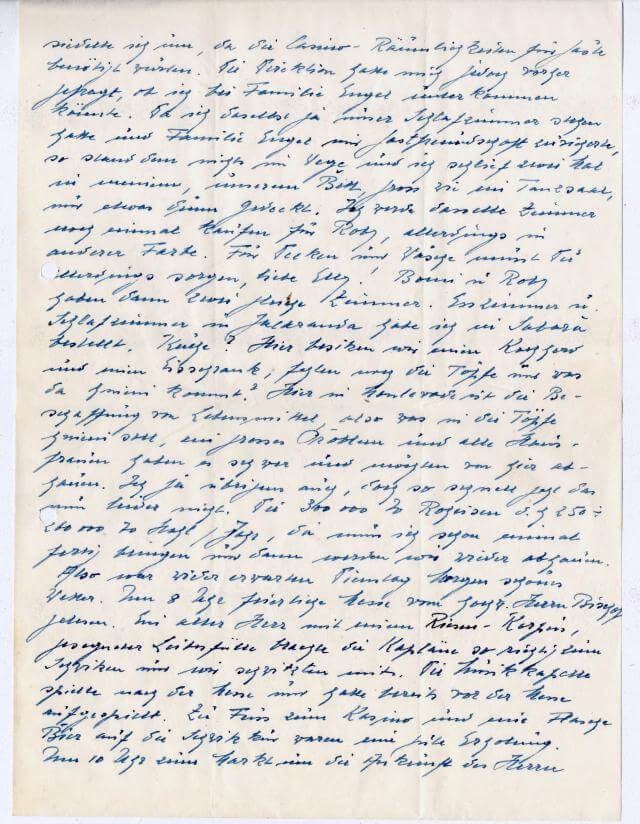 siedelte ich um, da die Casino-Räumlichkeiten für Gäste
benötigt würden. Die Direktion hatte mich jedoch vorher
gefragt, ob ich bei Familie Engel unterkommen
könnte. Da ich daselbst ja unser Schlafzimmer stehen
hatte und Familie Engel mir Gastfreundschaft zusicherte,
so stand dem nichts im Wege und ich schlief zwei Mal
in meinem, unserem Bett, gross wie ein Tanzsaal,
nur etwas dünn gedeckt. Ich werde dasselbe Zimmer
noch einmal kaufen für Roby, allerdings in
anderer Farbe. Für Decken und Wäsche musst Du
allerdings sorgen, liebe Elly! Bomi u Roby
haben dann zwei gleiche Zimmer. Esszimmer u.
Schlafzimmer in Jacaranda habe ich in Sabará
bestellt. Küche? Hier besitzen wir einen Kochherd
und einen Eisschrank, fehlen noch die Töpfe und was
da hinein kommt? Hier in Monlevade ist die Be-
schaffung von Lebensmittel, also was in die Töpfe
hinein soll, ein grosses Problem und alle Haus-
frauen haben es schwer und möchten von hier ab-
hauen. Ich ja übrigens auch, doch so schnell geht das
nun leider nicht. Die 300 000 To Roheisen d.h. 250÷
260 000 To Stahl/Jahr, da muss ich schon einmal
fertig bringen und dann werden wir wieder abhauen.
Also war wider erwarten Dienstag Morgen schönes
Wetter. Um 8 Uhr feierliche Messe vom hochw. Herrn Bischof
gelesen. Ein alter Herr mit einem Riesen-Korpus,
gesegneter Leibesfülle brachte die Kapläne so richtig zum
Schwitzen und wir schwitzten mit. Die Musikkapelle
spielte nach der Messe und hatte bereits vor der Messe
aufgespielt. Zu Fuss zum Kasino und eine Flasche
Bier auf die Schwitzkur waren eine gute Erholung.
Um 10 Uhr zum Markt um die Ankunft der Herrn